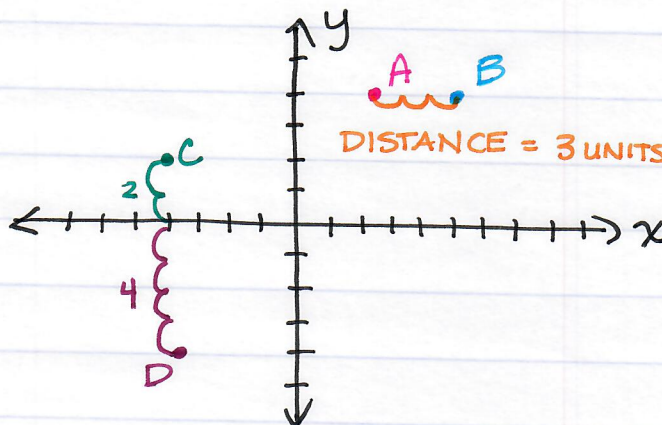 y
A B
DISTANCE = 3 UNITS
C
2
x
4
D